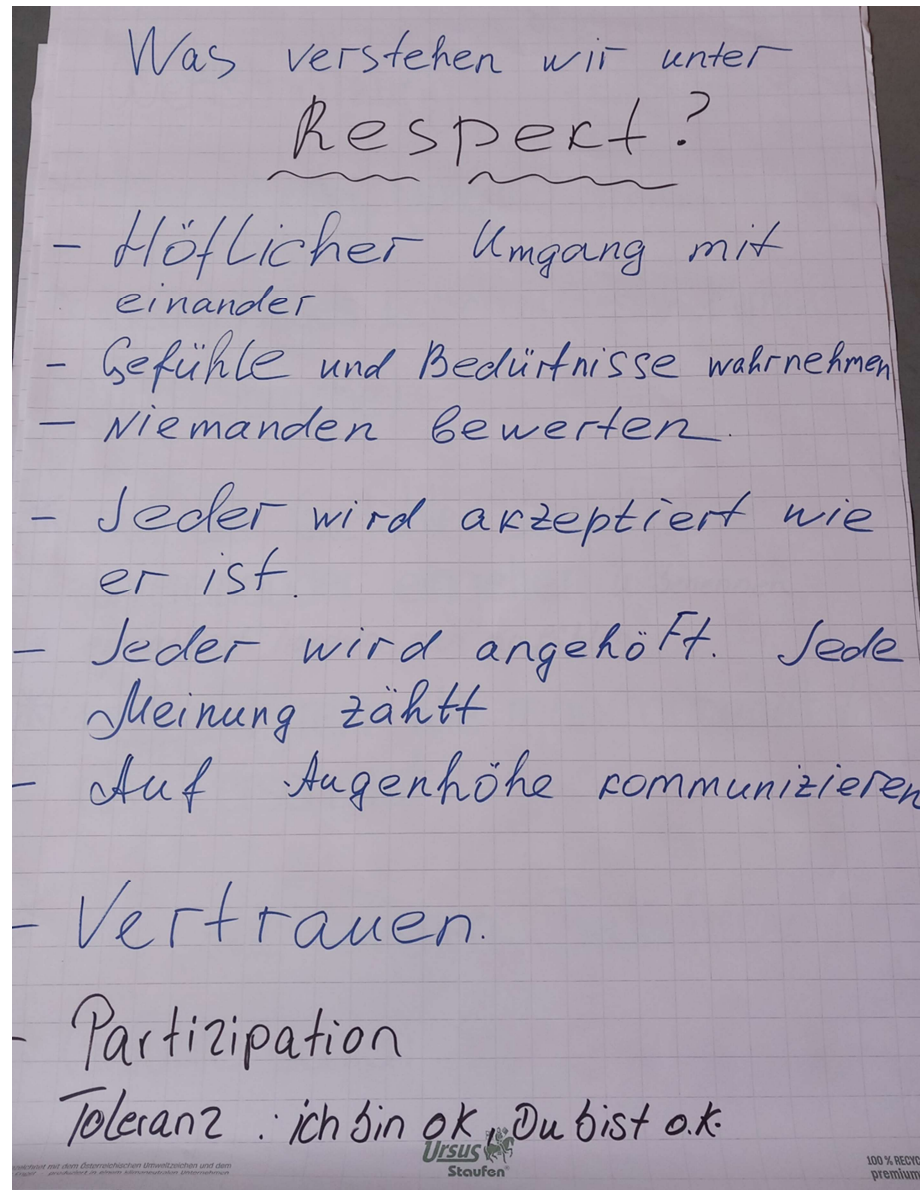 Was verstehen wir unter
Respekt?
- Höflicher Umgang mit
einander
- Gefühle und Bedürfnisse wahrnehmen
- Niemanden bewerten.
- Jeder wird akzeptiert wie
er ist.
- Jeder wird angehöft. Jede
Meinung zähtt
- Auf Augenhöhe kommunizieren
- Vertrauen.
- Partizipation
Toleranz : ich bin ok, Du bist o.k.
Ursus
Staufen
mit dem Österreichischen Umweltzeichen und dem
100 % RECYC
premium